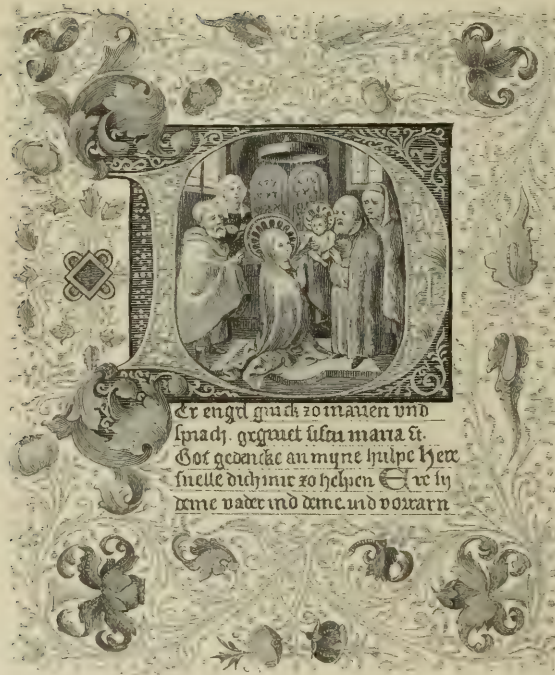 Er engel ginck zo marien vnd
sprach. gegruet sistu maria ꝛc.
Got gedencke an myne hulpe Here
snelle dich mir zo helpen E re sy
deme vader ind deme. vnd vortarn